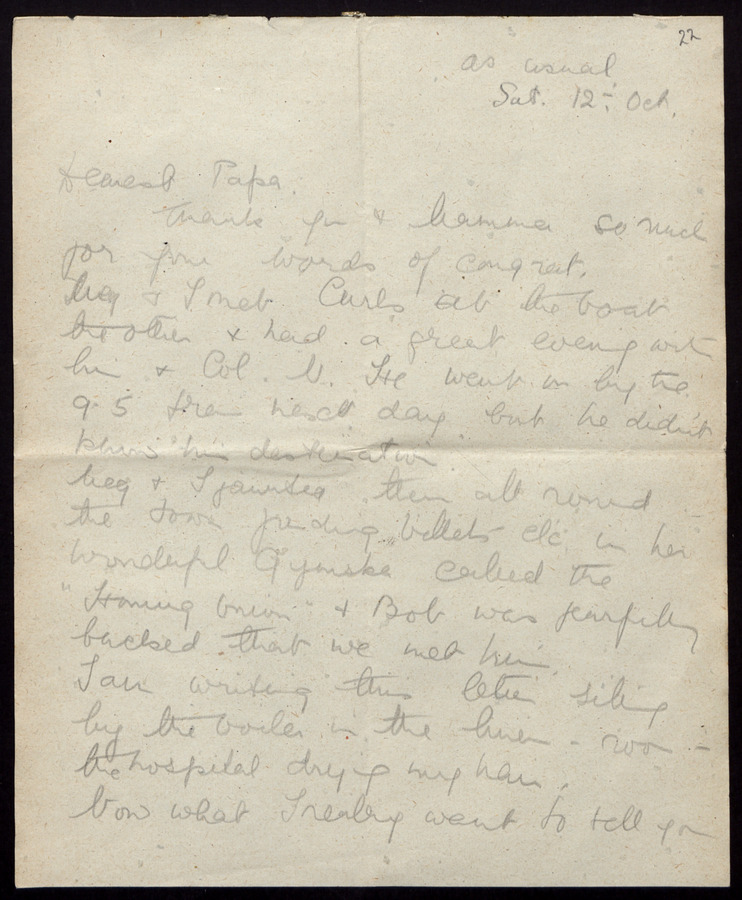 22
as usual
Sat. 12th Oct.
Dearest Papa,
Thanks you & Mamma so much
for your words of congrat.
Meg & I met Curls at the boat
the other & had a great evening with
him & Col. N. He went on by the
9.5 train next day but he didn't
know his destination
Meg & I jaunted them all round
the town finding billets etc in her
wonderful called the
"Homing " & Bob was fearfully
bucked that we met him.
I am writing this letter sitting
by the boiler in the linen-room
the hospital drying my hair.
Now what I really want to tell you